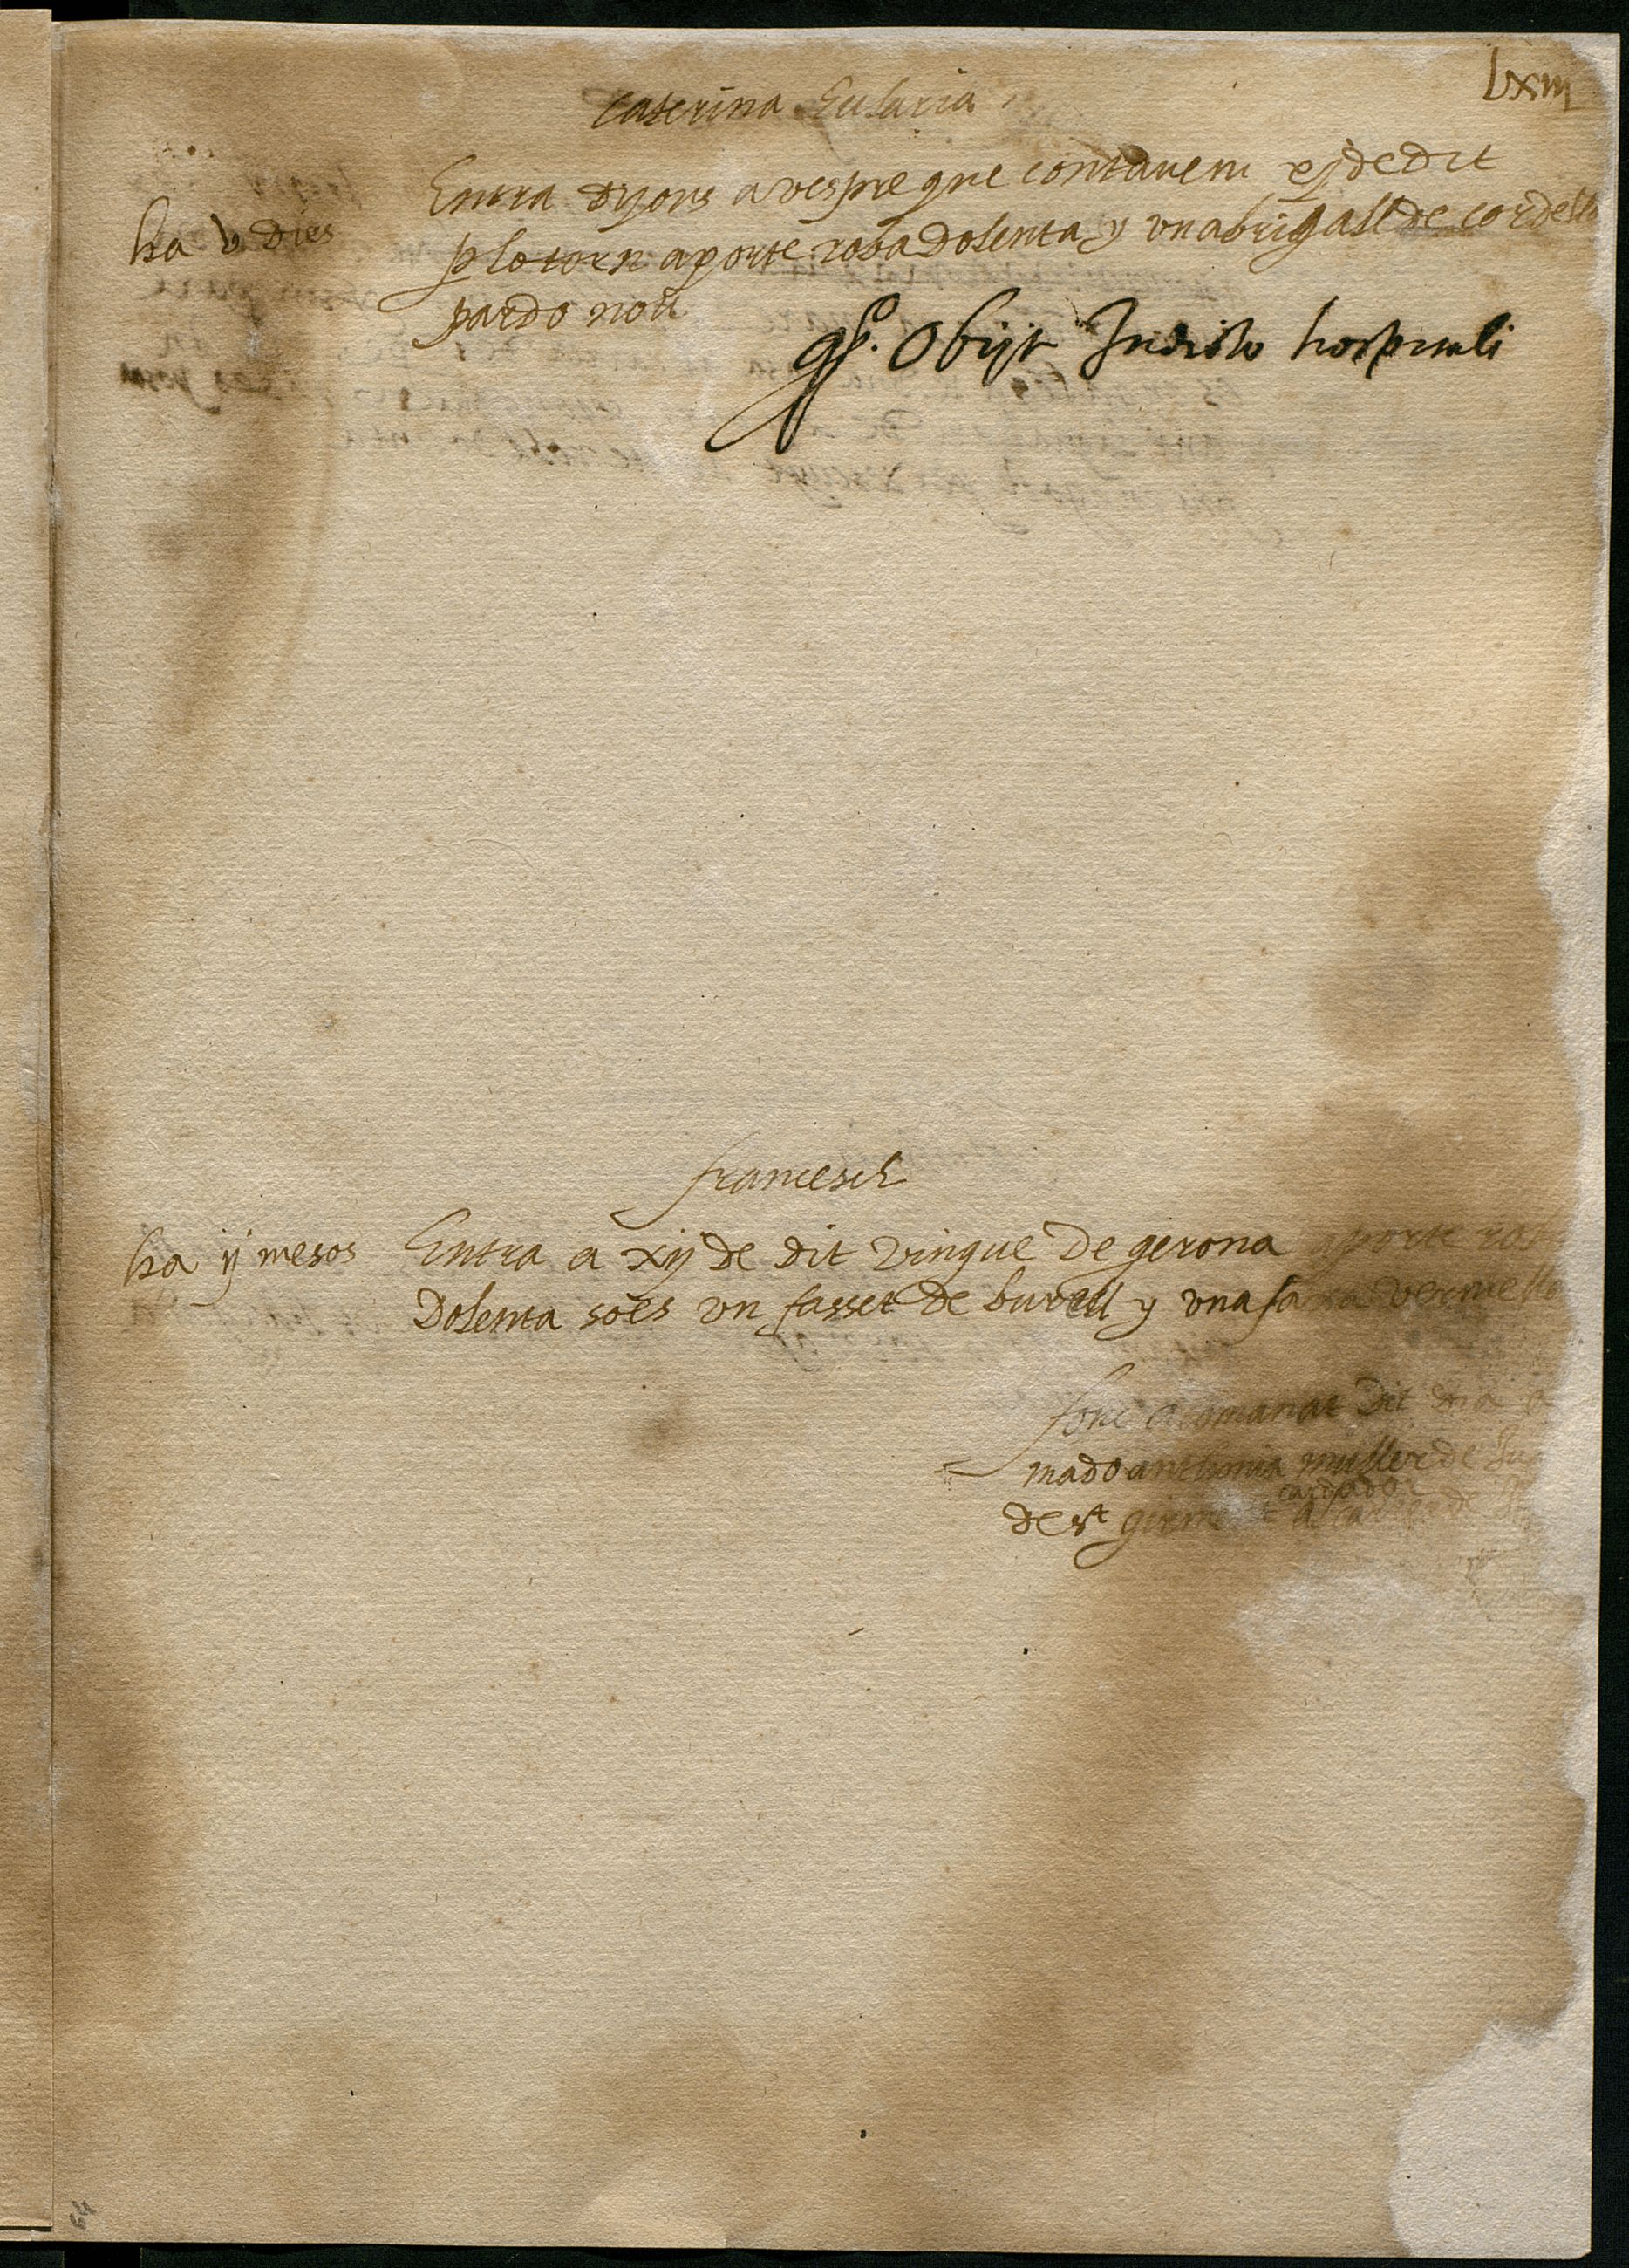 lxiiij
Caterina Eularia
ha v dies
Entra dijous a vespre que contavem xj de dit
p lo torn aporte roba dolenta y un abrigall de cordell
pardo nou
Obijt In dicto hospitali
francesch
ha ij mesos
Entra a xij de dit vingue de gerona aporte rob
dolenta soes un sasset de burell y una faxa vermella
fonc acomanat dit dia a
mado anthonia muller de
cardador
de st